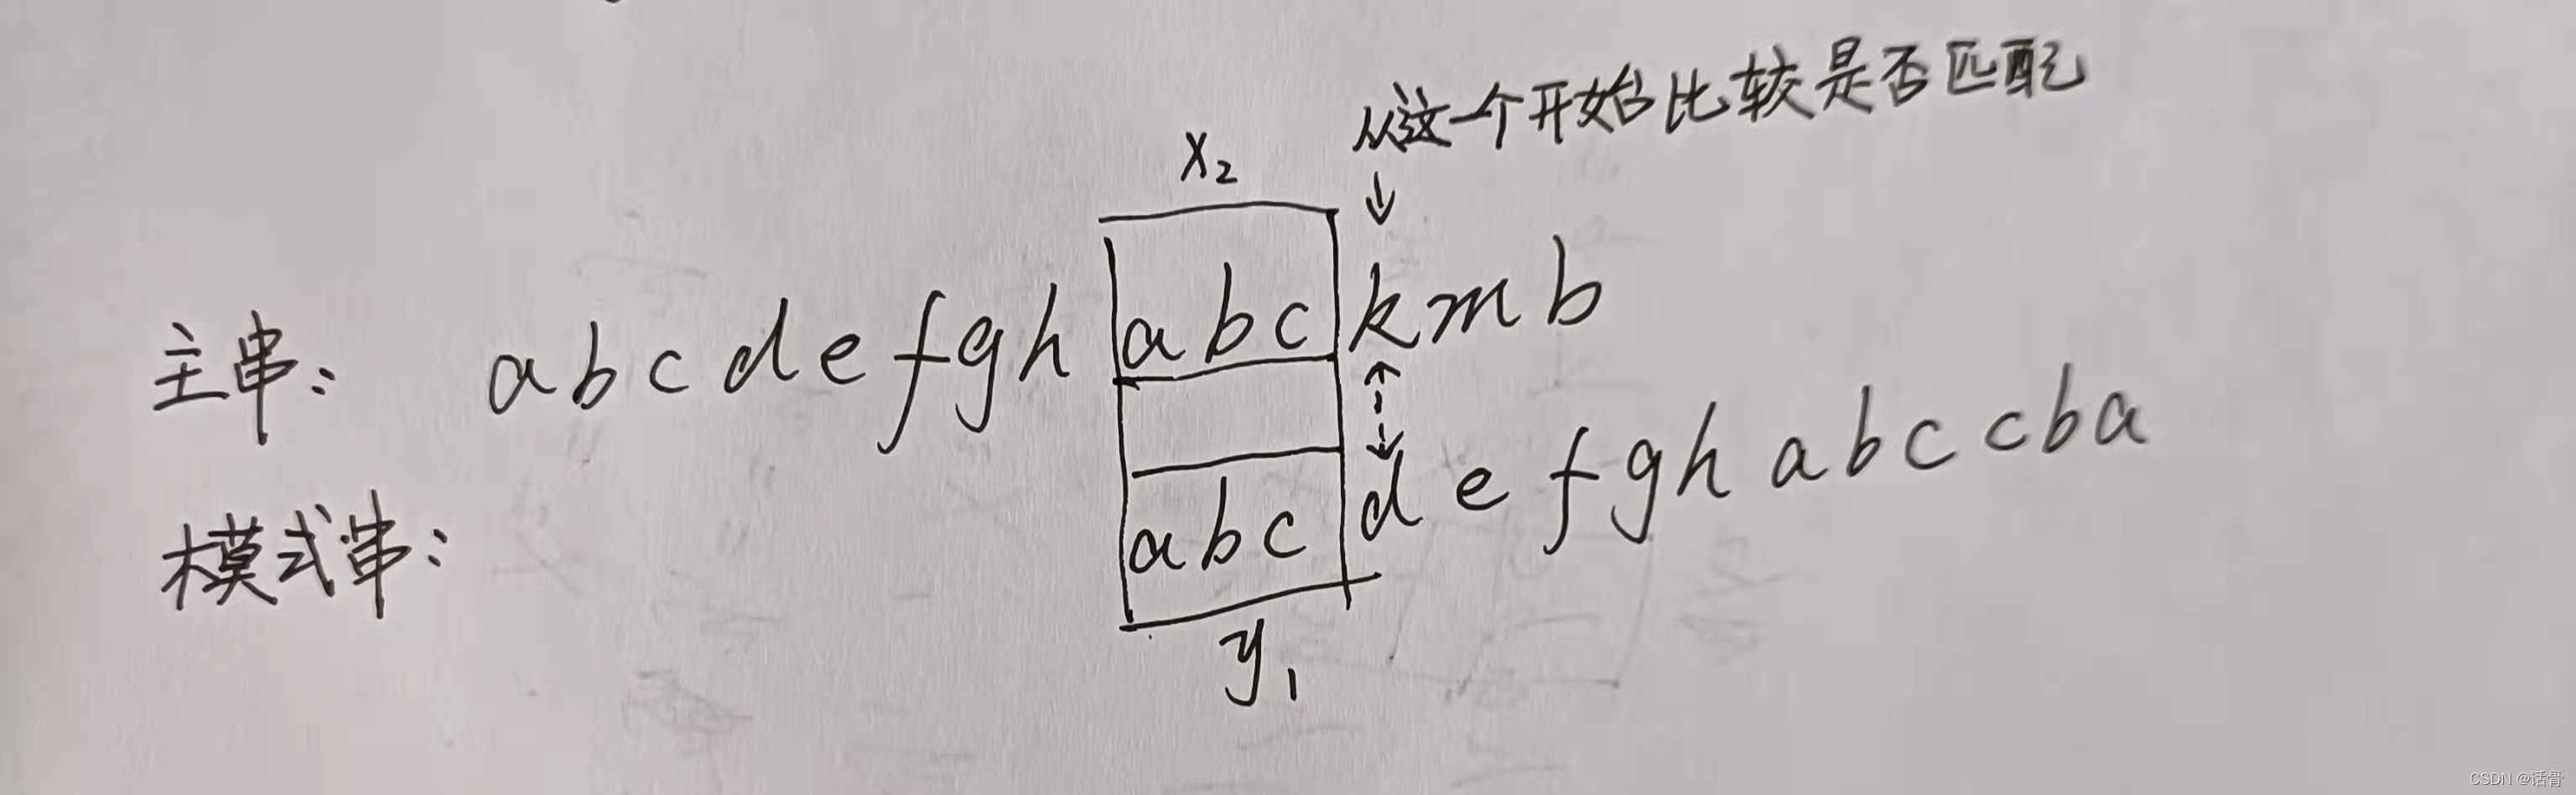 从这一个开始比较是否匹配
x₂
主串: abcdefgh abc kmb
模式串: abc defghabccba
y₁
CSDN @话骨